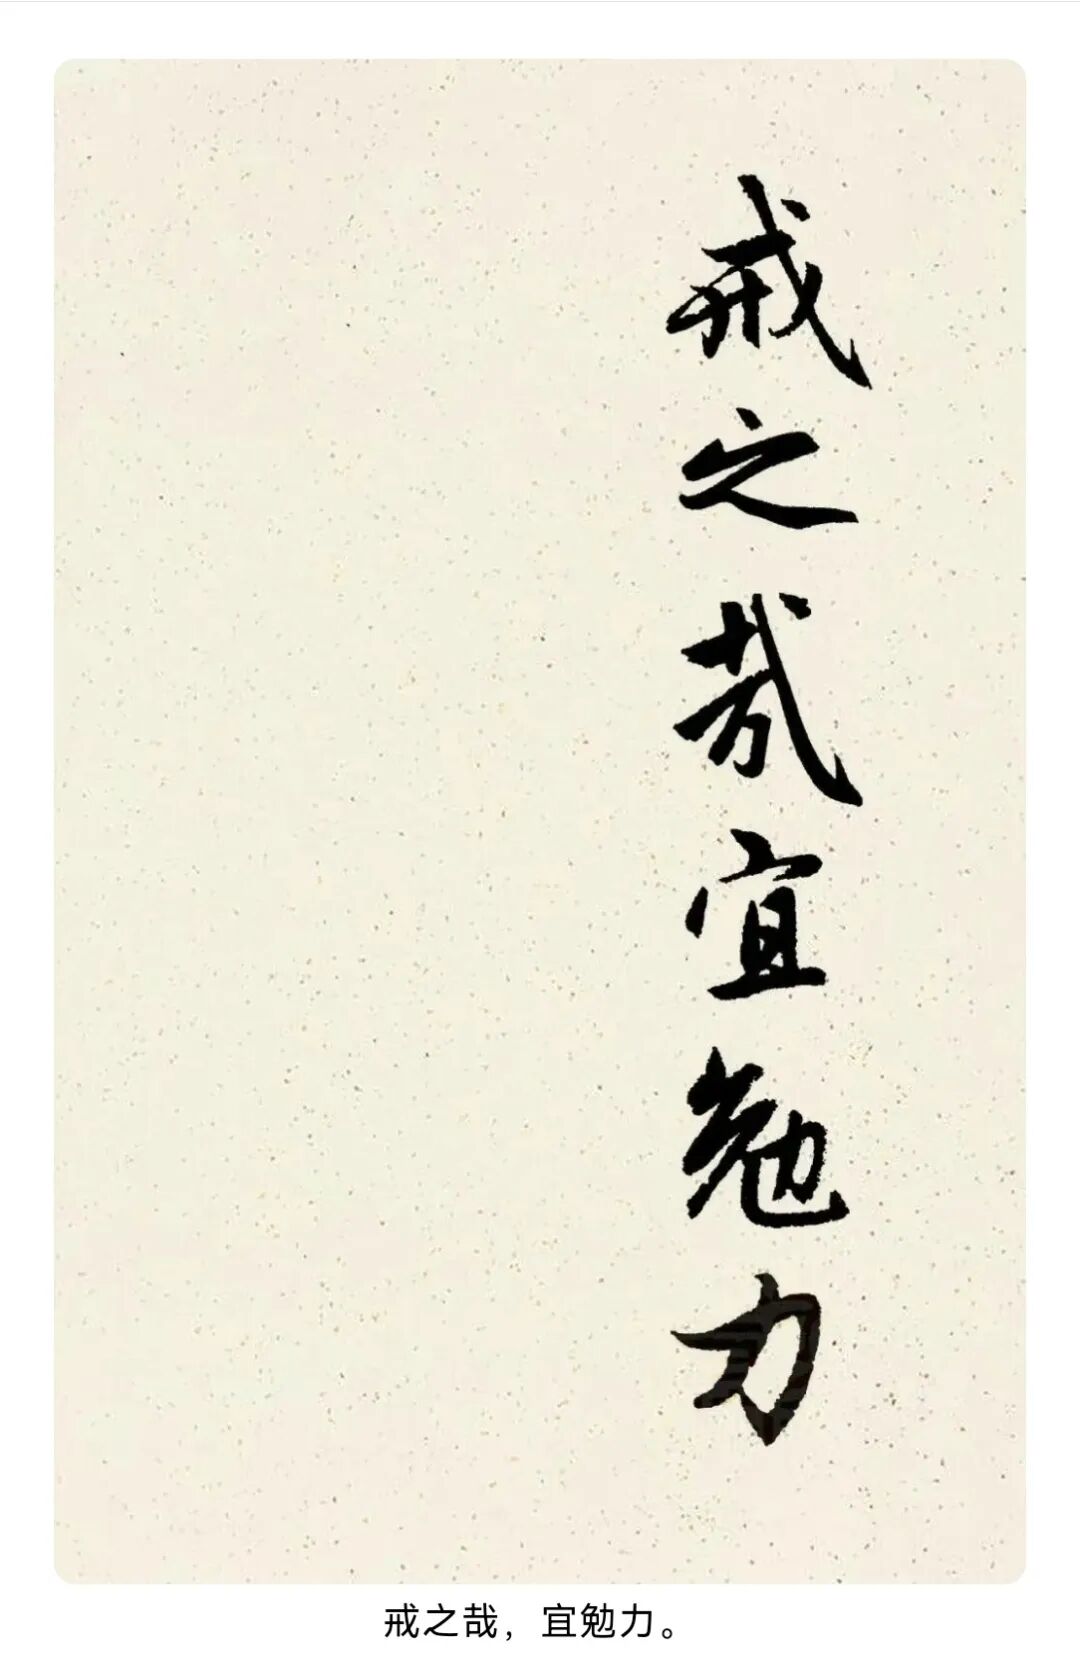 戒之哉宜勉力
戒之哉，宜勉力。